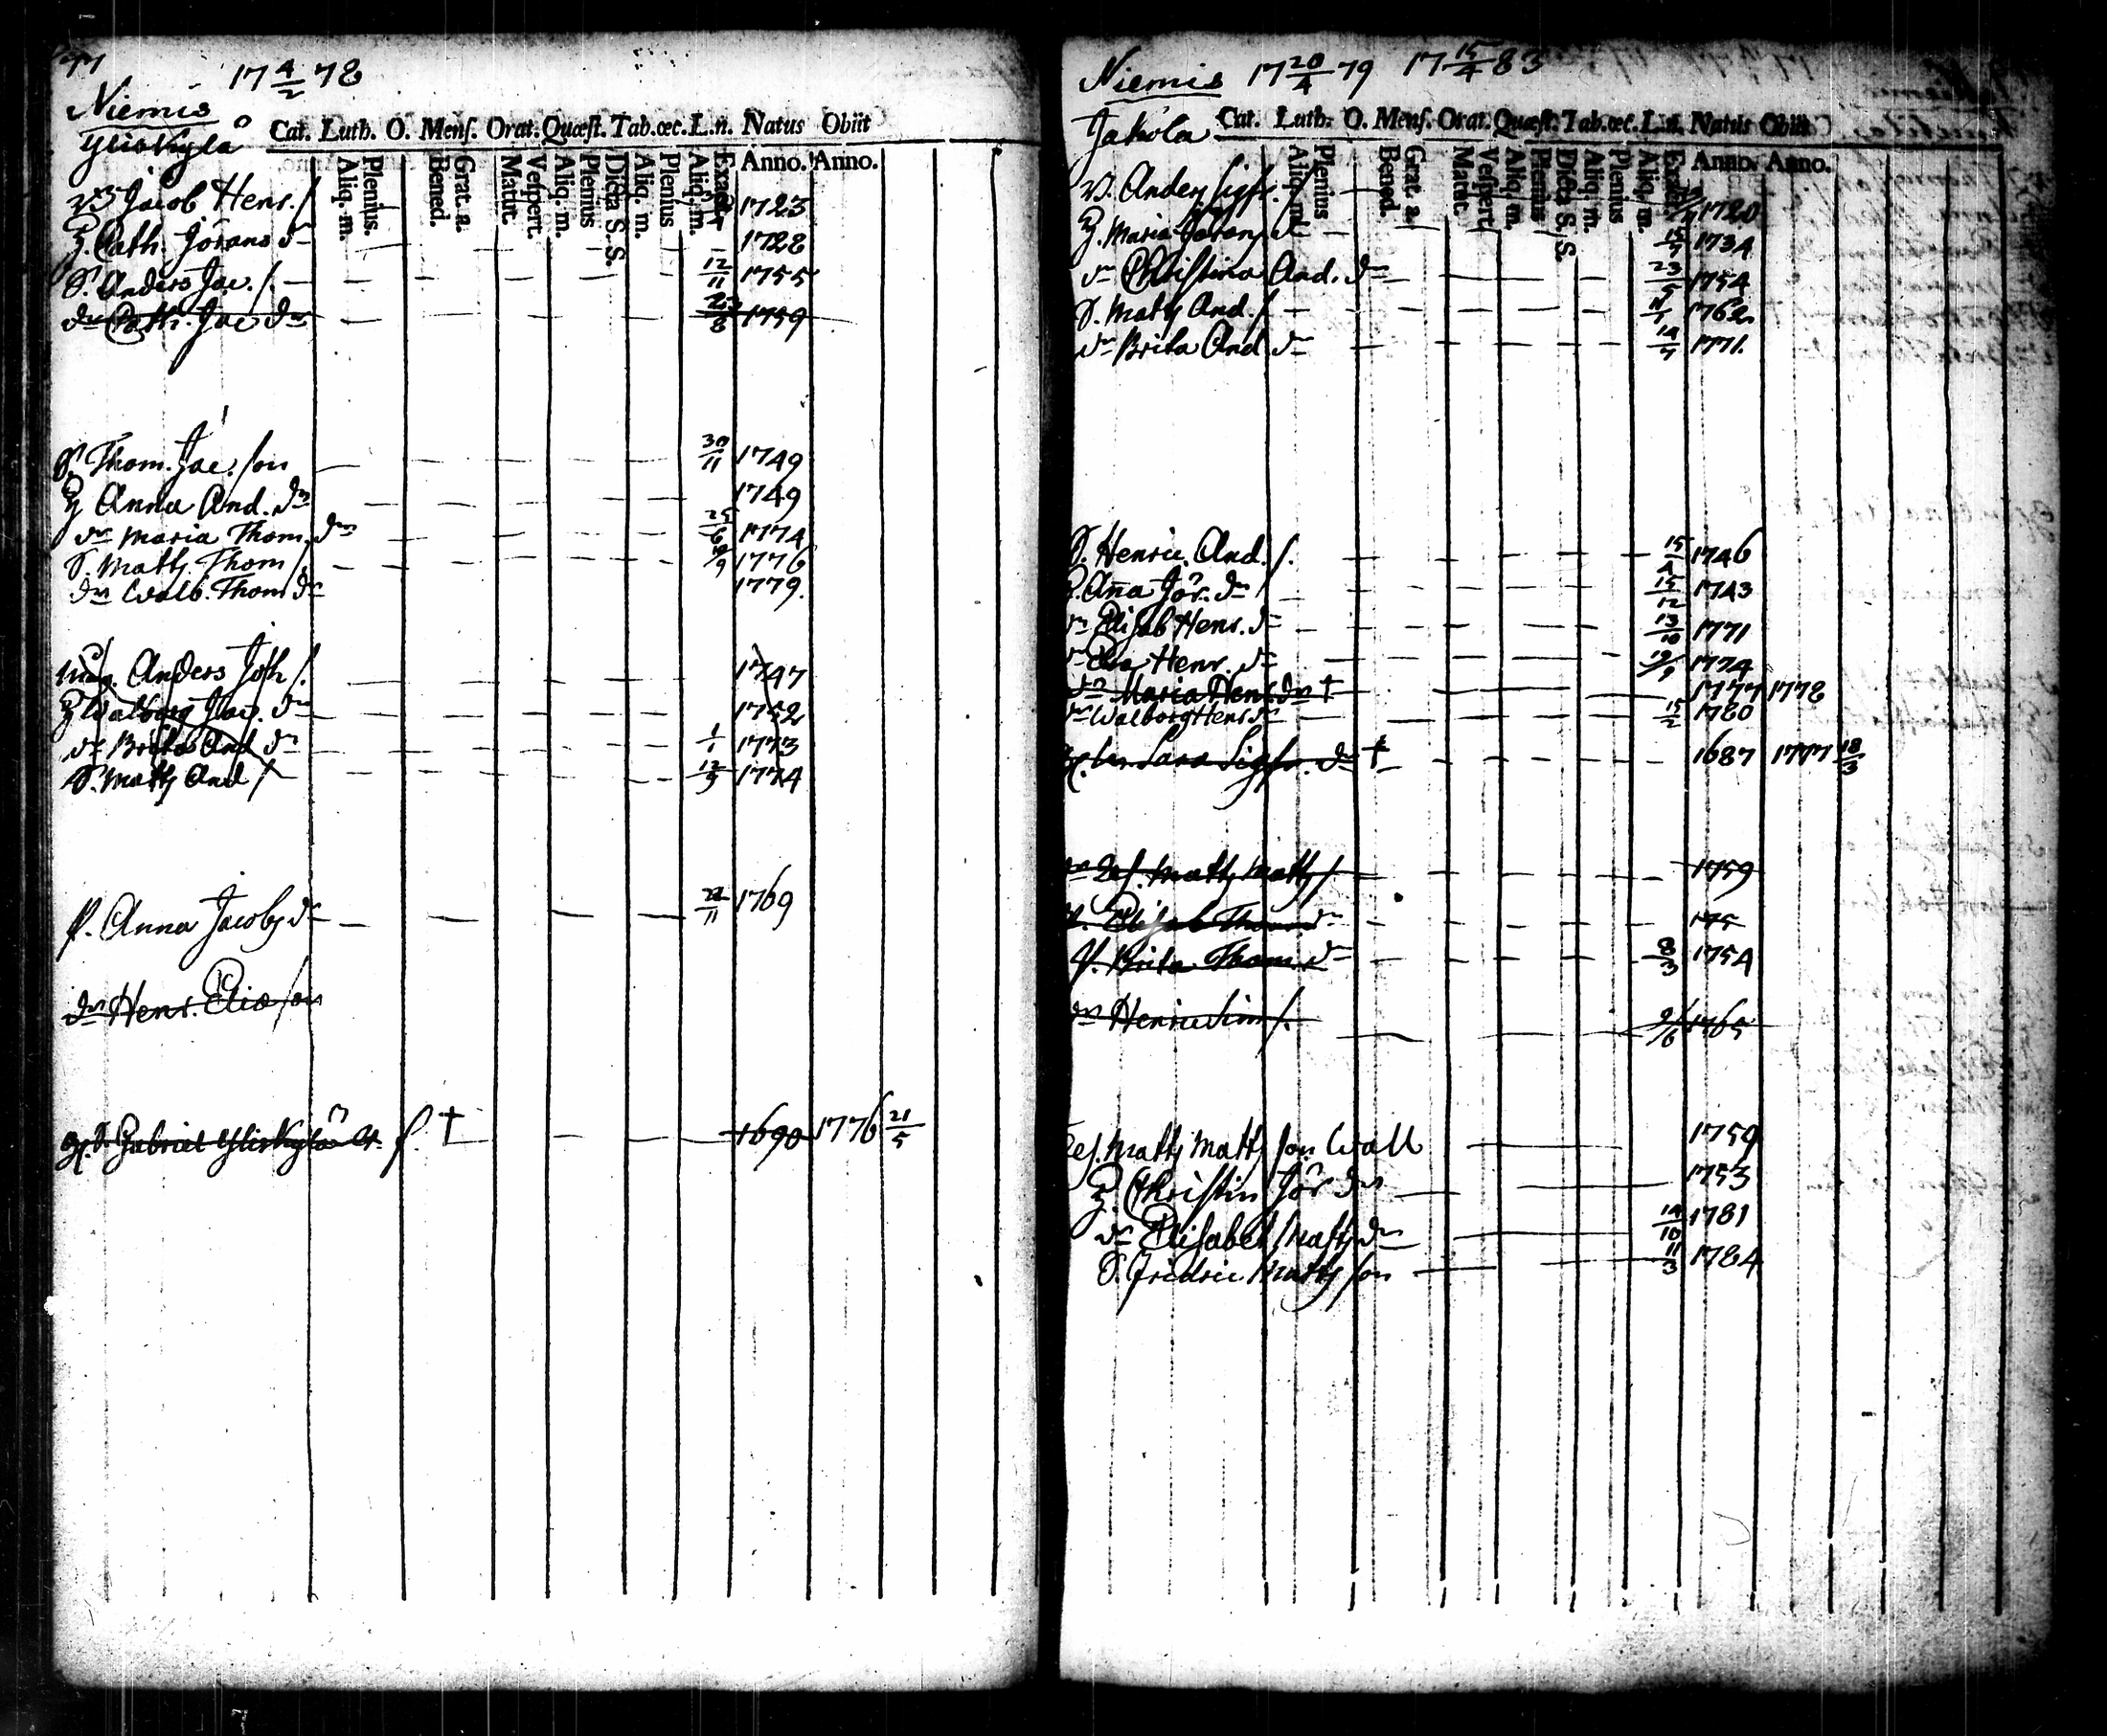 77
17 4/2 78
Niemis
Ylioskylå
Cat. Luth. O. Mens. Orat. Quæst. Tab. œc. L. n. Natus Obiit
Aliq. m. Plenius. Bened. Grat. a. Matut. Vespert. Aliq. m. Plenius Dicta S. S. Aliq. m. Plenius Aliq. m. Exact. Anno. Anno.
Jacob Henr. s. 1723
H. Cath. Jörans dr 1728
S. Anders Jac. s. 12/11 1755
dr Cath. Jac dr 23/8 1759
S. Thom. Jac. son 30/11 1749
H Anna And. dr 1749
dr Maria Thom. dr 25/6 1774
S. Matts. Thom s. 10/9 1776
dr Walb. Thom dr 1779.
Anders Joh s. 1747
H Walborg Jac. dr 1752
dr Brita And dr 1/1 1773
S. Matts And s. 12/9 1774
P. Anna Jacobs dr 22/11 1769
dr Henr. Elias son
S. Gabriel s. † 1690 1776 21/5
Niemis 17 20/4 79 17 15/4 83
Jakola
Cat. Luth. O. Mens. Orat. Quæst. Tab. œc. L. n. Natus Obiit
Aliq. m. Plenius Bened. Grat. a. Matut. Vespert. Aliq. m. Plenius Dicta S. S. Aliq. m. Plenius Aliq. m. Exact. Anno. Anno.
Anders Sigfr. s. 1720
H. Maria Görans dr 15/7 1734
dr Christina And. dr 23/5 1754
S. Matts And. s. 1762
dr Brita And dr 14/7 1771.
S. Henric. And. s. 15/4 1746
H. Anna Jör. dr 15/12 1743
dr Elisab Henr. dr 13/10 1771
dr Eva Henr. dr 19/9 1774
dr Maria Henr. dr † 1777 1778
dr Walborg Henr dr 15/2 1780
Sara Sigfr. dr † 1687 1777 18/3
Matts Matts s. 1759
P. Elisab Thom. dr 175
P. Brita Thom. dr 8/3 1754
Henric Sim s. 9/6 1765
Matts Matts son Wall 1759
H. Christin Jör dr 1753
dr Elisabet Matts dr 14/10 1781
S. Fridric Matts son 11/3 1784